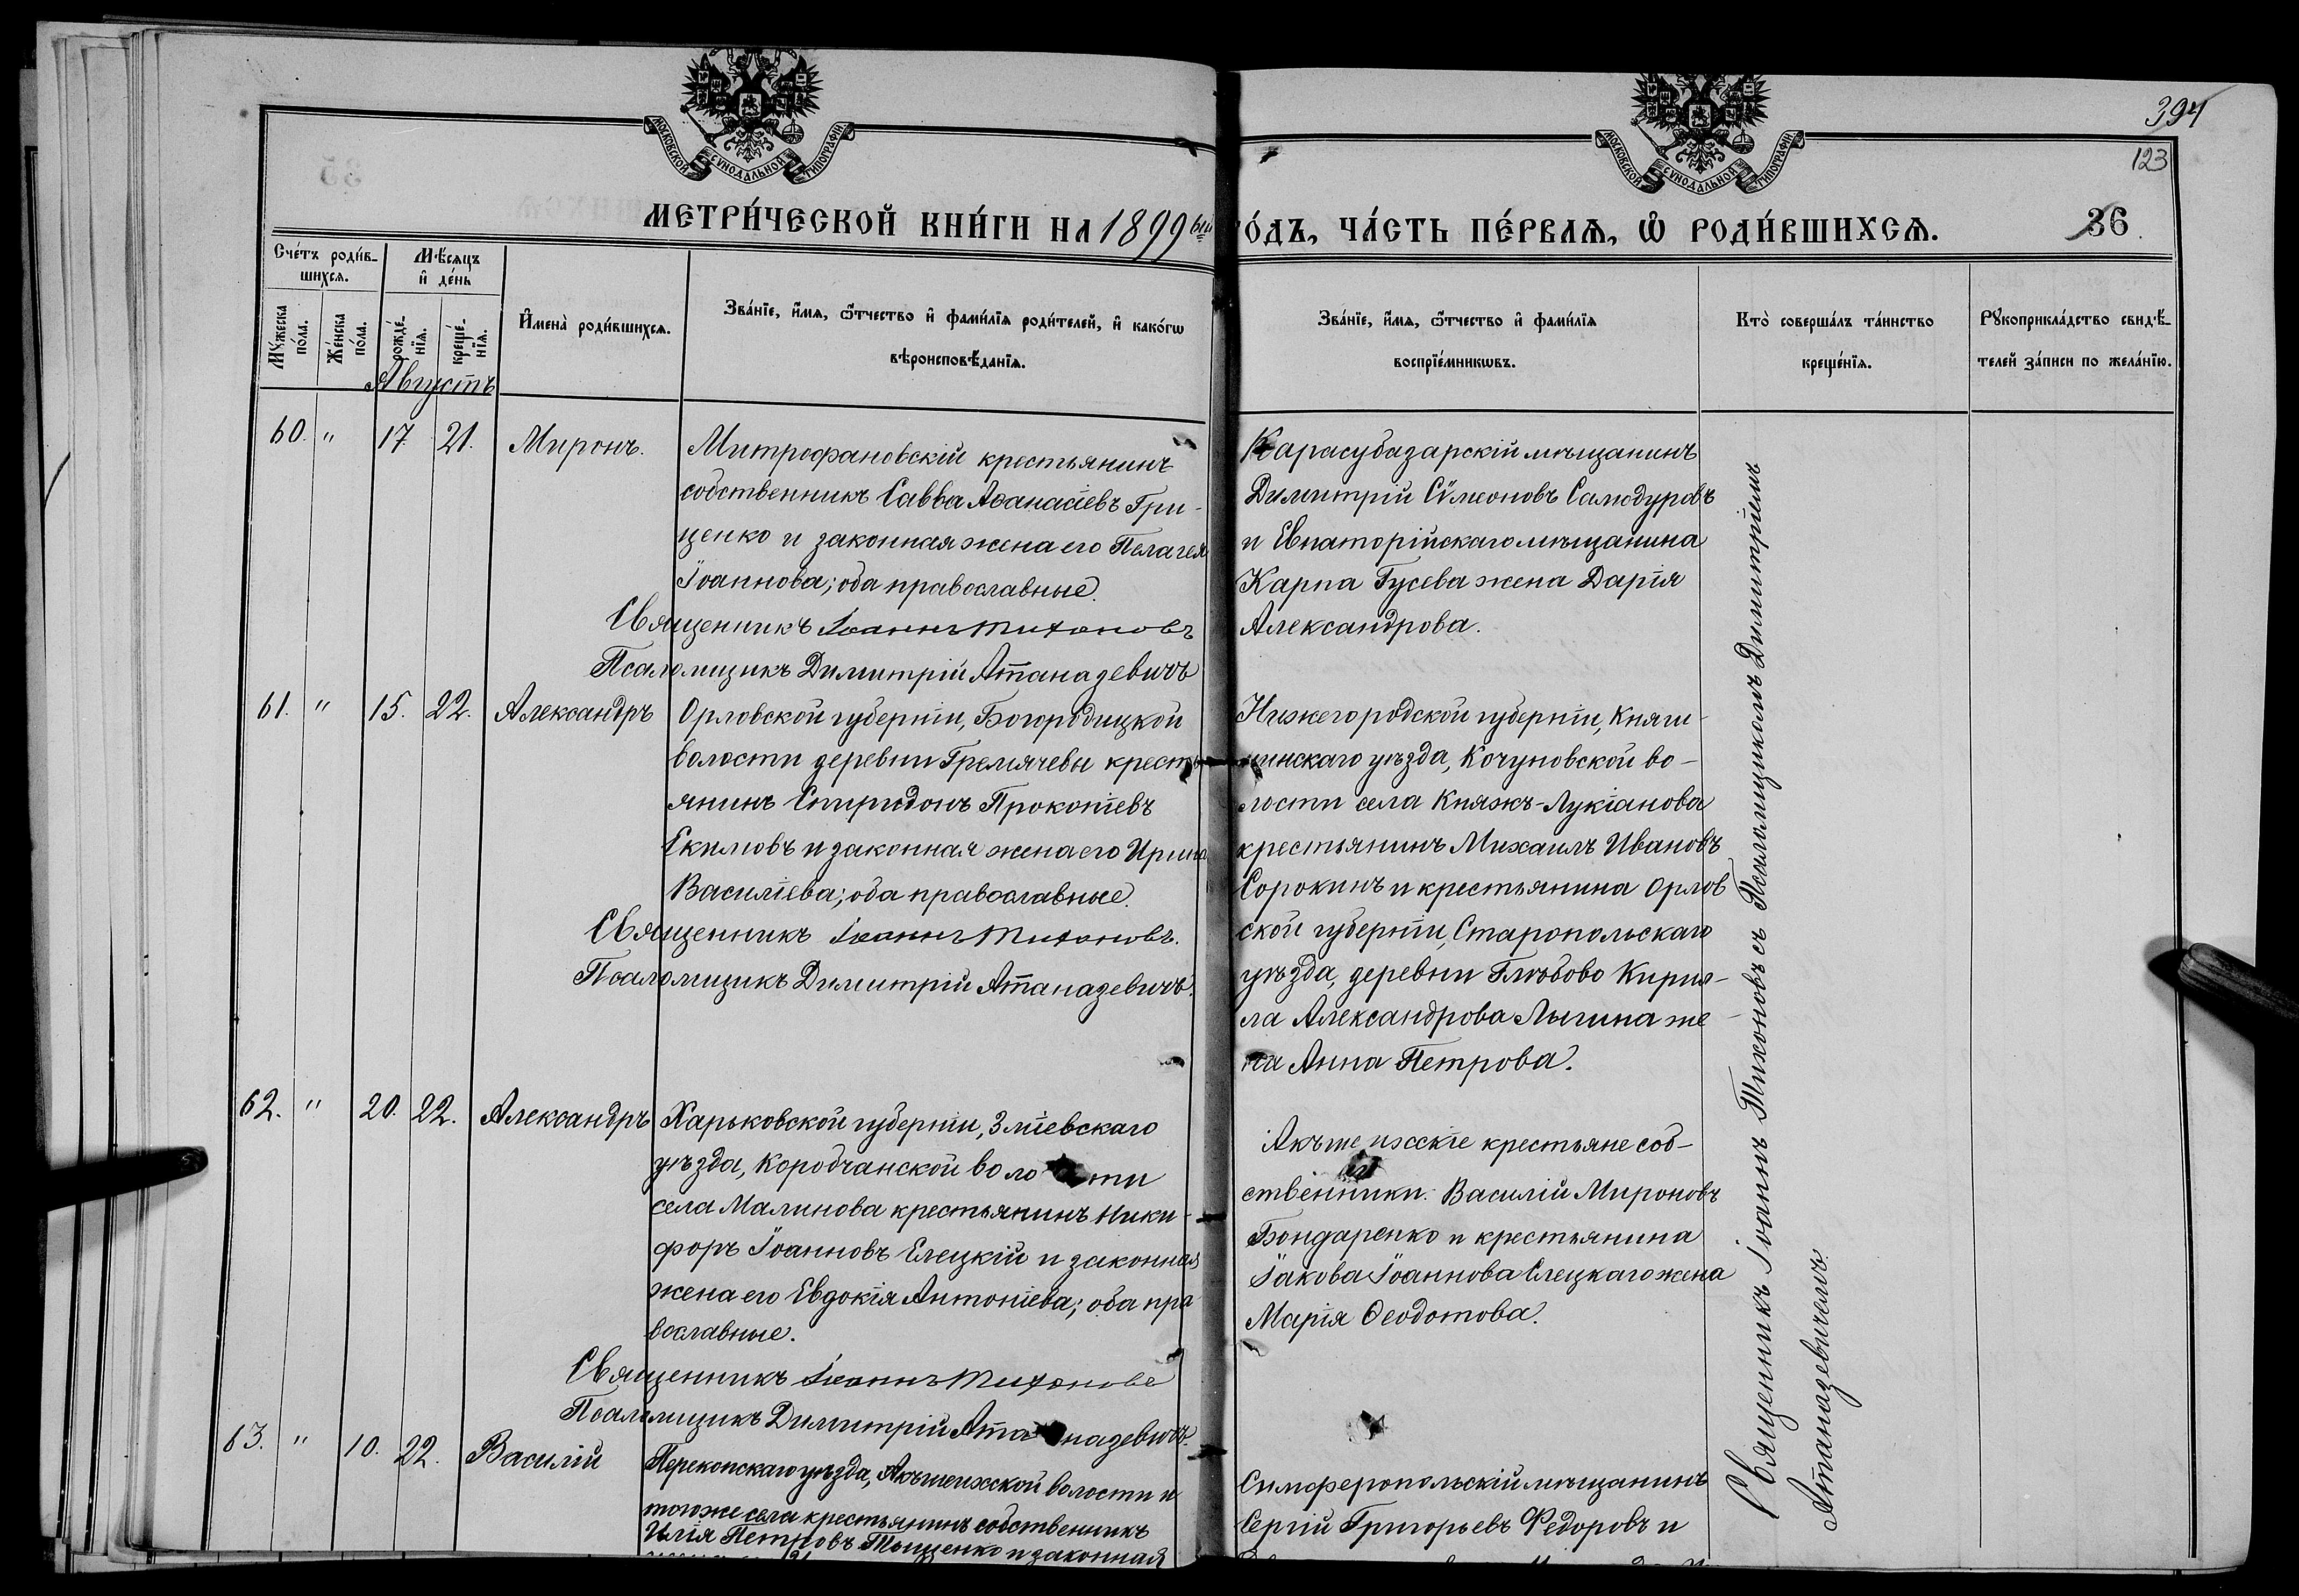 394
123
МОСКОВСКОЙ СѴНОДАЛЬНОЙ ТИПОГРАФІИ
МОСКОВСКОЙ СѴНОДАЛЬНОЙ ТИПОГРАФІИ
МЕТРИ́ЧЕСКОЙ КНИ́ГИ НА 1899 ый ГО́ДЪ, ЧА́СТЬ ПЕ́РВАѦ, Ѡ҆ РОДИ́ВШИХСѦ. 36
Сче́тъ роди́в-
шихсѧ.
Мꙋ́жеска по́ла.
Же́нска по́ла.
Мѣ́сѧцъ
и҆ де́нь
рожде́-
нїѧ.
креще́-
нїѧ.
И҆мена̀ роди́вшихсѧ.
Зва́нїе, и҆́мѧ, ѻ҆́тчество и҆ фами́лїѧ роди́телей, и҆ како́гѡ
вѣроисповѣ́данїѧ.
Зва́нїе, и҆́мѧ, ѻ҆́тчество и҆ фами́лїѧ
воспрїе́мникѡвъ.
Кто̀ соверша́лъ та́инство
креще́нїѧ.
Рꙋкоприкла́дство свидѣ́-
телей за́писи по жела́нїю.
Августъ
60. " 17 21. Миронъ.
Митрофановскій крестьянинъ
собственникъ Савва Аѳанасіевъ Гри-
ценко и законная жена его Пелагея
Іоаннова; оба православные.
Священникъ Іоаннъ Тихоновъ
Псаломщикъ Димитрій Атаназевичъ
Карасубазарскій мѣщанинъ
Димитрій Сѵмеоновъ Самодуровъ
и Евпаторійскаго мѣщанина
Карпа Гусева жена Дарія
Александрова.
61. " 15. 22. Александръ
Орловской губерніи, Богородицкой
волости деревни Гремячевы кресть
янинъ Спиридонъ Прокопіевъ
Екимовъ и законная жена его Ирина
Василіева; оба православные.
Священникъ Іоаннъ Тихоновъ.
Псаломщикъ Димитрій Атаназевичъ.
Нижегородской губерніи, Княги-
нинскаго уѣзда, Кочуновской во-
лости села Княжъ-Лукіанова
крестьянинъ Михаилъ Ивановъ
Сорокинъ и крестьянина Орлов
ской губерніи, Старопольскаго
уѣзда, деревни Глѣбово Кирил-
ла Александрова Лыгина же-
на Анна Петрова.
62. " 20. 22. Александръ
Харьковской губерніи, Зміевскаго
уѣзда, Коробчанской волости
села Малинова крестьянинъ Ники-
форъ Іоанновъ Елецкій и законная
жена его Евдокія Антоніева; оба пра
вославные.
Священникъ Іоаннъ Тихоновъ
Псаломщикъ Димитрій Атаназевичъ.
Акъшеихскіе крестьяне соб-
ственники: Василій Мироновъ
Бондаренко и крестьянина
Іакова Іоаннова Елецкаго жена
Марія Ѳеодотова.
63. " 10. 22. Василій
Перекопскаго уѣзда, Акъшеихской волости и
тогоже села крестьянинъ собственникъ
Илія Петровъ Тищенко и законная
Симферопольскій мѣщанинъ
Сергій Григорьевъ Федоровъ и
Священникъ Іоаннъ Тихоновъ съ Псаломщикомъ Димитріемъ
Атаназевичемъ.